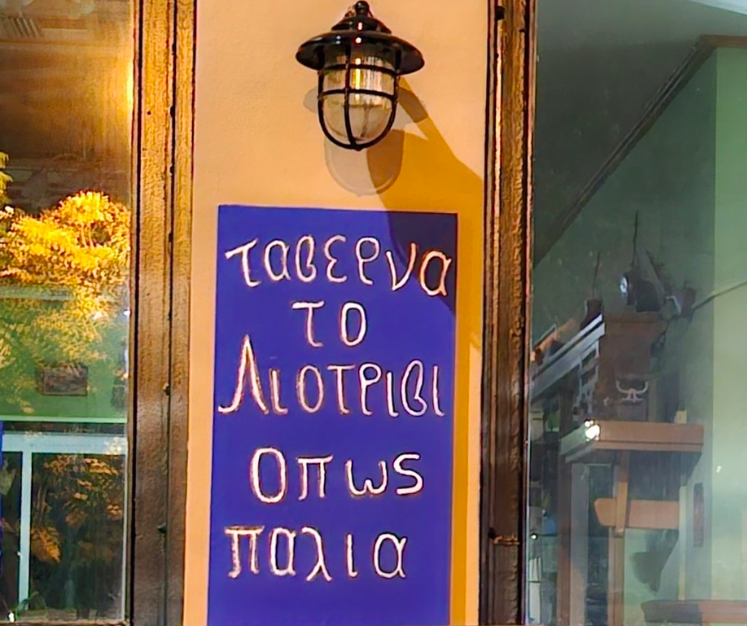 ταβερνα
το
Λιοτριβι
οπως
παλια